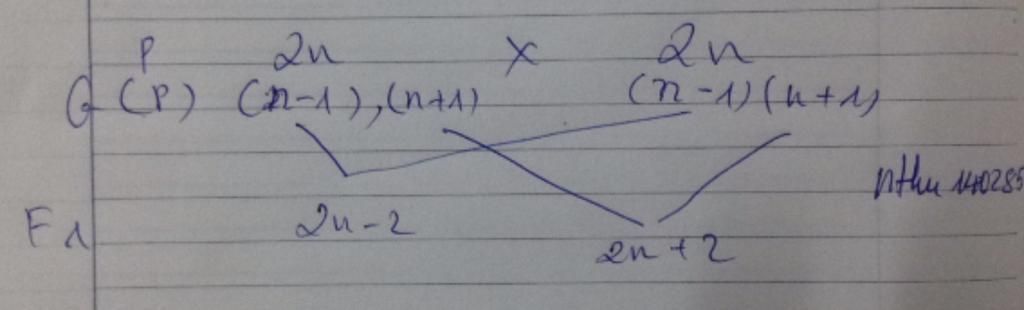 P 2n x 2n
G (P) (n-1), (n+1) (n-1) (n+1)
nthu 140285
F1 2n-2 2n+2